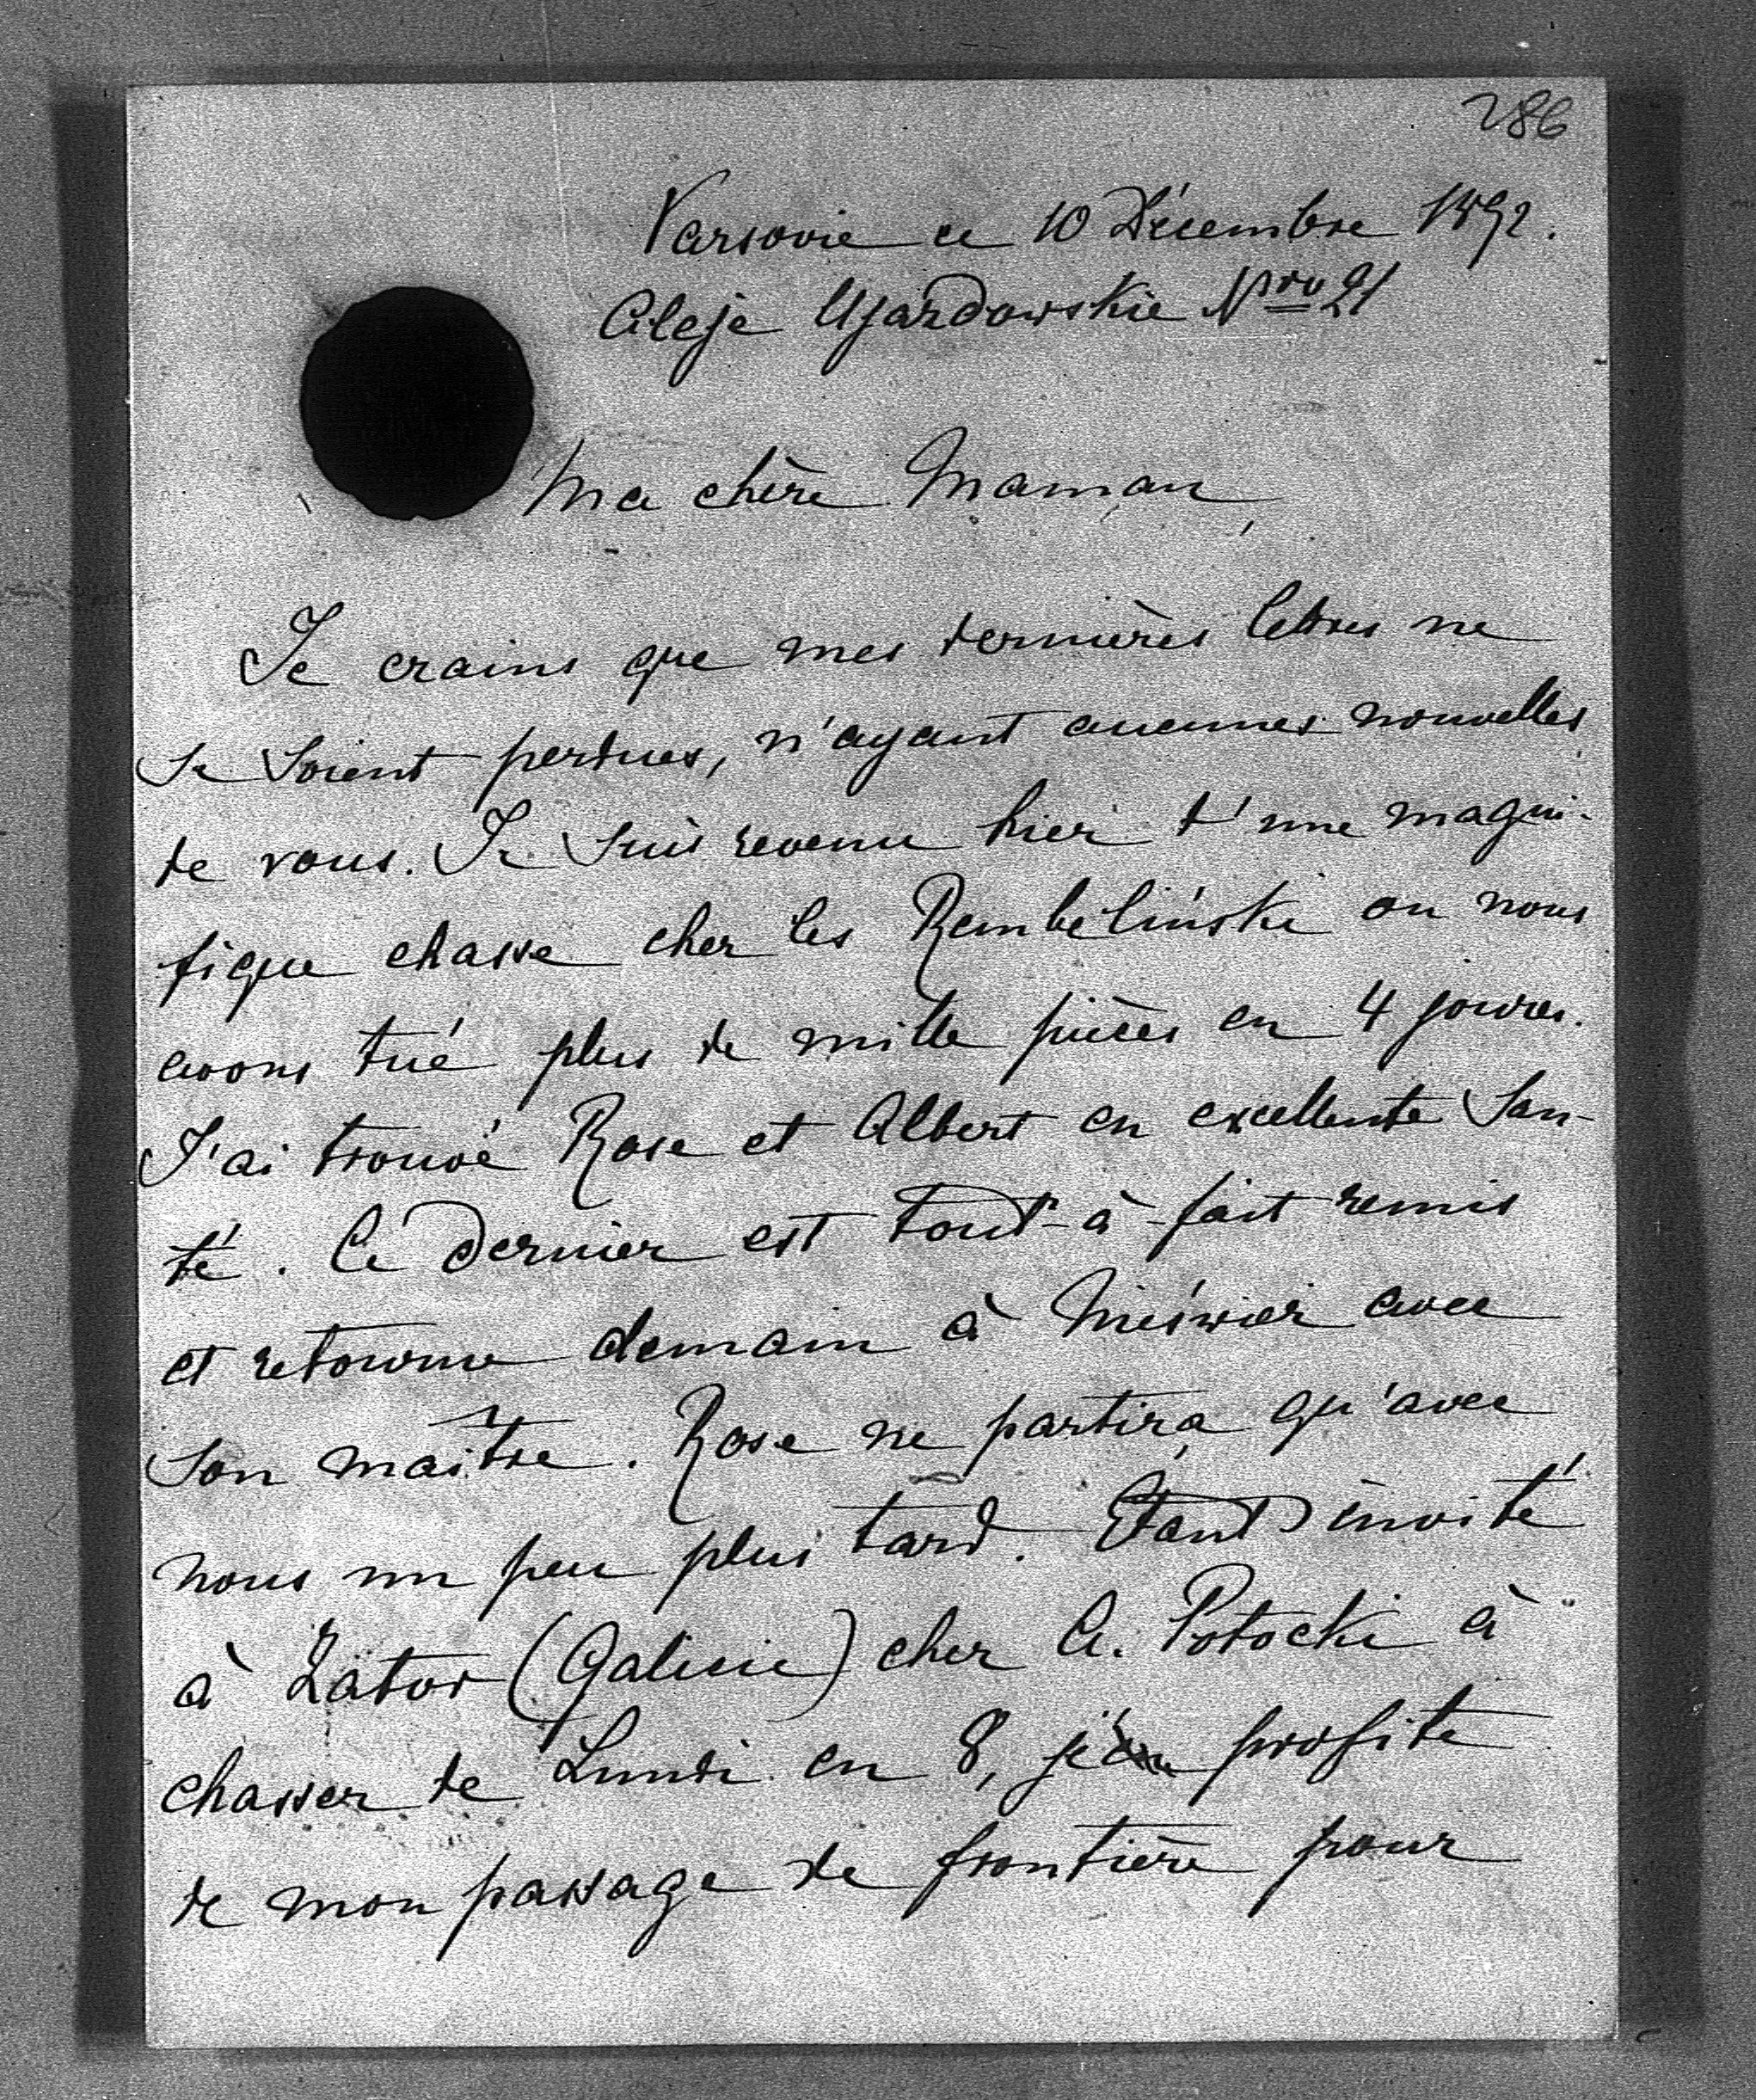 286
Varsovie ce 10 Décembre 1892.
Aleje Ujazdowskie Nro 21
Ma chère Maman,
Je crains que mes dernières lettres ne
se soient perdues, n'ayant aucunes nouvelles
de vous. Je suis revenu hier d'une magni-
fique chasse chez les Rembeliński ou nous
avons tué plus de mille pièces en 4 jours.
J'ai trouvé Rose et Albert en excellente San-
té. Ce dernier est tout-à-fait remis
et retourne demain à Nieśwież avec
son maître. Rose ne partira qu'avec
nous un peu plus tard. Etant invité
à Zator (Galicie) chez A. Potocki à
chasser de Lundi en 8, je profite
de mon passage de frontière pour